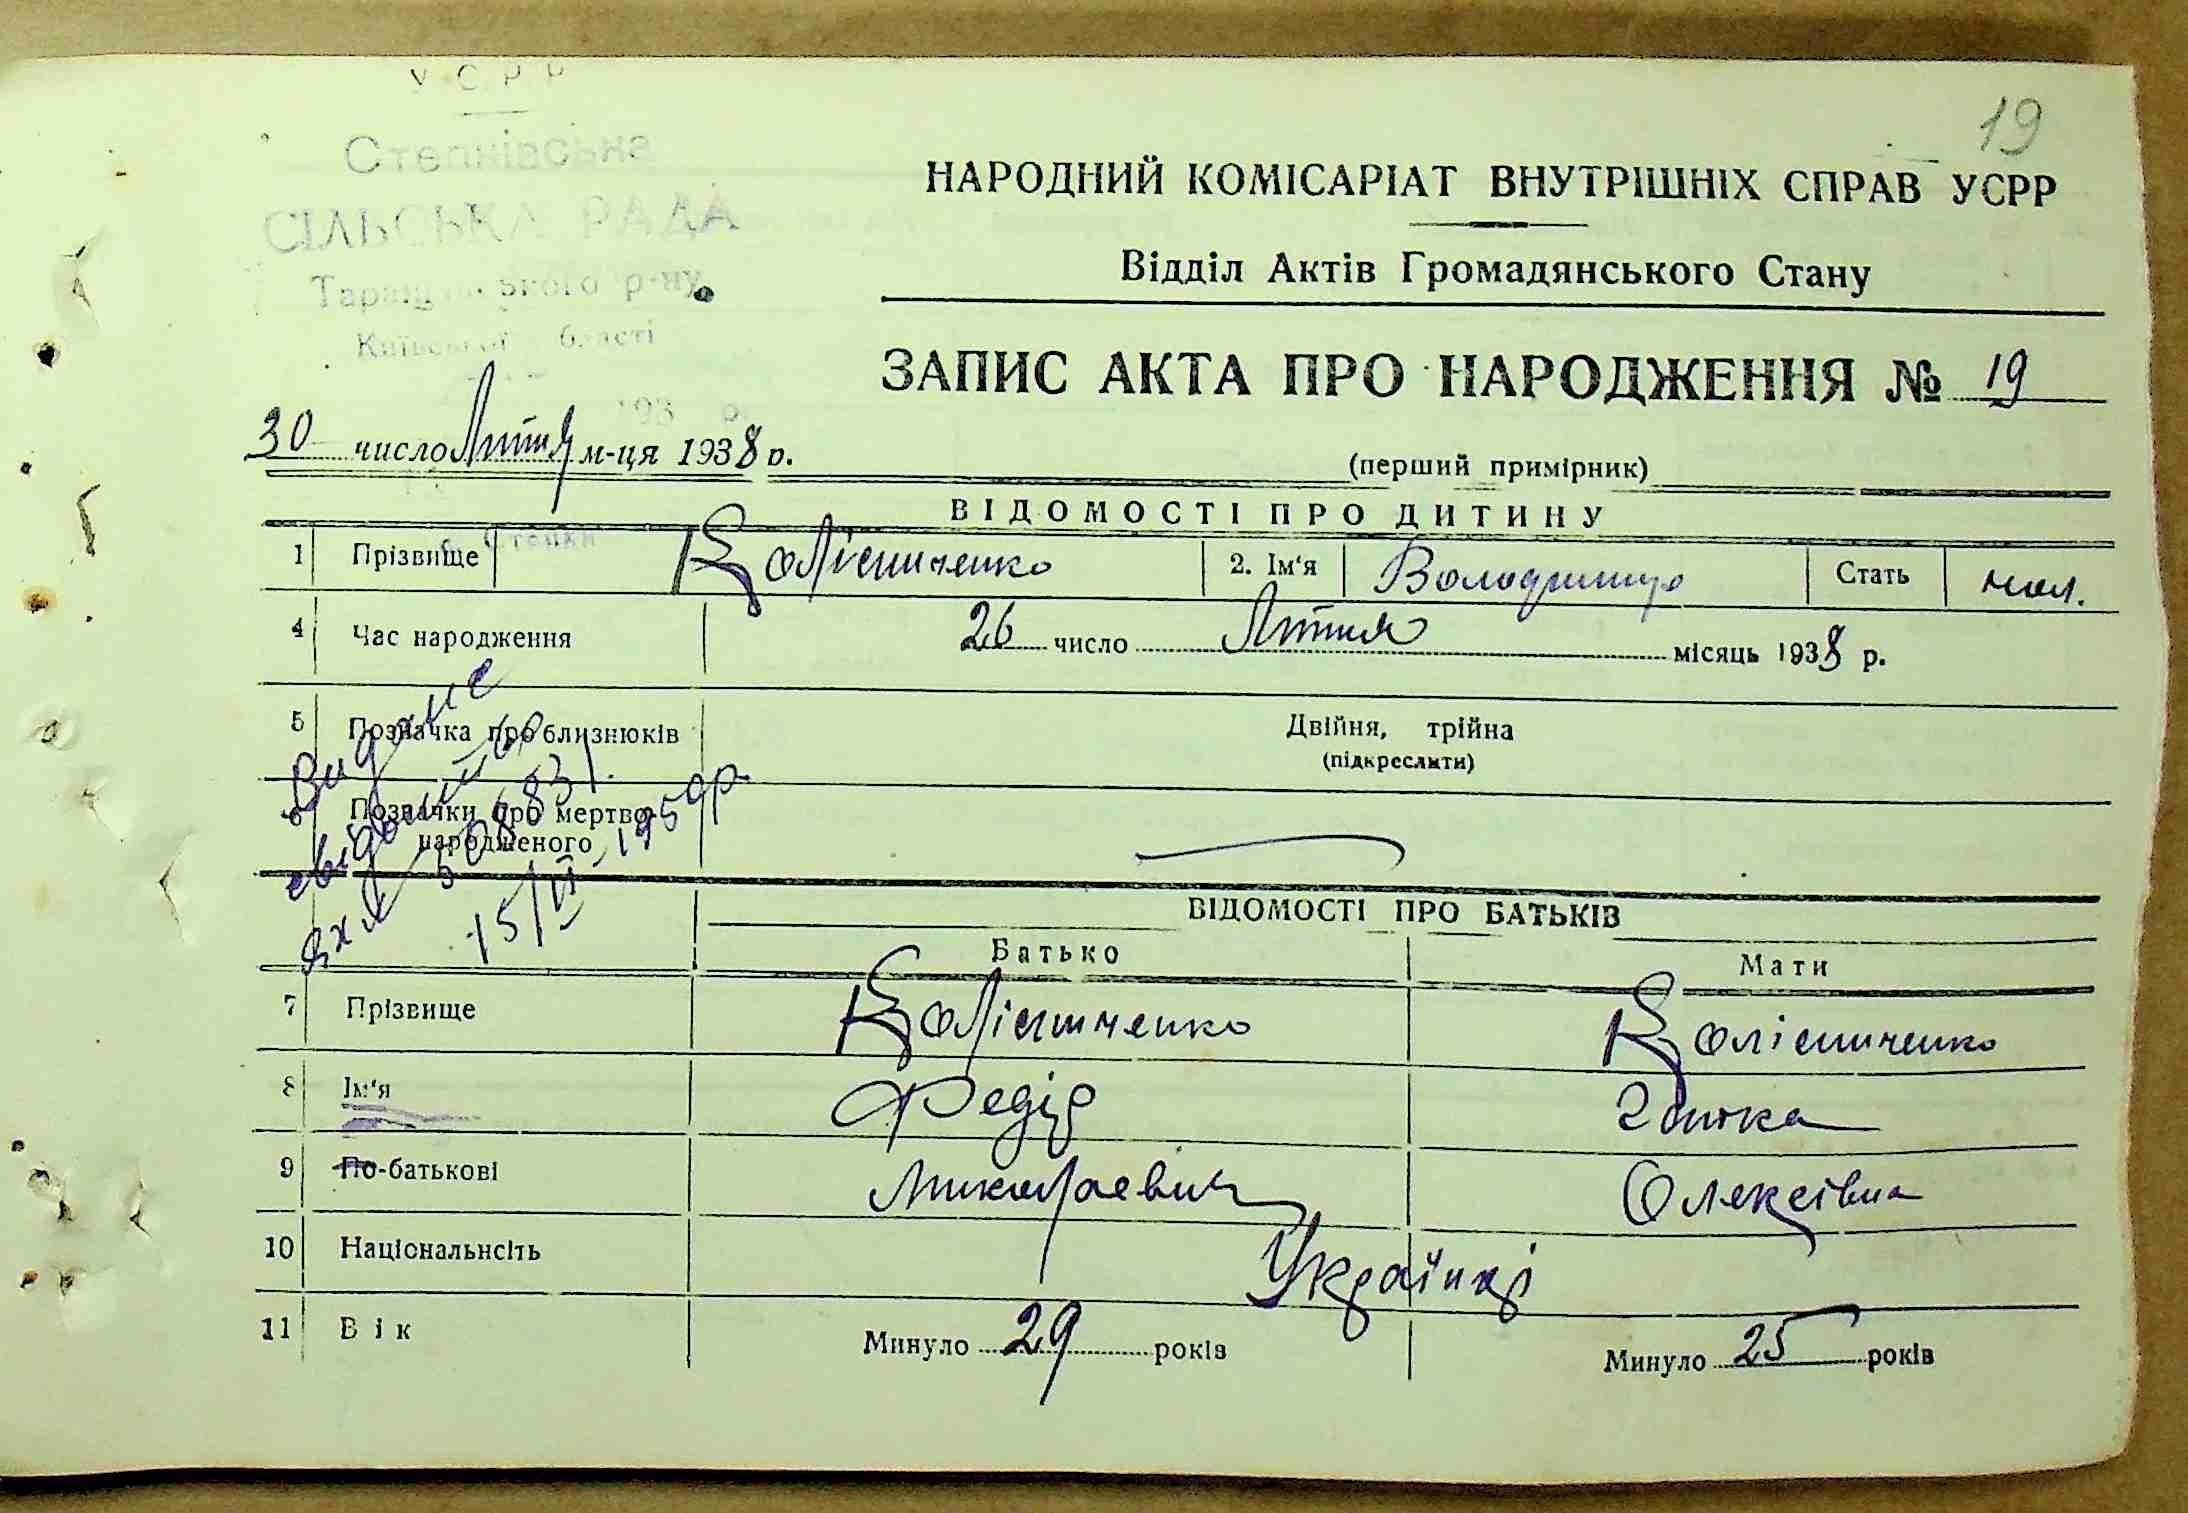 УСРР
Степківська
СІЛЬСЬКА РАДА
Таращанського р-ну
Київської області
193 р.
с. Степки
19
НАРОДНИЙ КОМІСАРІАТ ВНУТРІШНІХ СПРАВ УСРР
Відділ Актів Громадянського Стану
ЗАПИС АКТА ПРО НАРОДЖЕННЯ № 19
30 число Лютня м-ця 1938 р.
(перший примірник)
ВІДОМОСТІ ПРО ДИТИНУ
1 Прізвище Колісниченко 2. Ім'я Володимир Стать чол.
4 Час народження 26 число Лютня місяць 1938 р.
5 Позначка про близнюків Двійня, трійня
(підкреслити)
6 Позначки про мертво-
народженого
Видане
свідоцтво
508831
15/VI 1950р.
ВІДОМОСТІ ПРО БАТЬКІВ
Батько Мати
7 Прізвище Колісниченко Колісниченко
8 Ім'я Федір
9 По-батькові Миколаєвич Олексівна
10 Національнсіть Українці
11 Вік Минуло 29 років Минуло 25 років